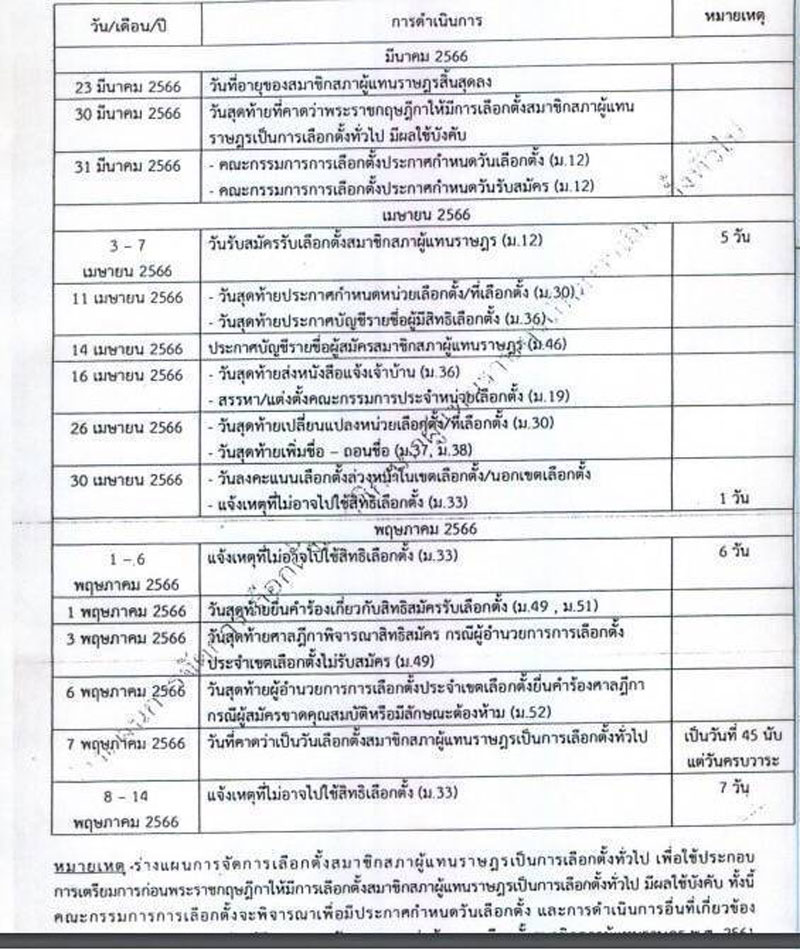 วัน/เดือน/ปี การดำเนินการ หมายเหตุ
มีนาคม 2566
23 มีนาคม 2566 วันที่อายุของสมาชิกสภาผู้แทนราษฎรสิ้นสุดลง
30 มีนาคม 2566 วันสุดท้ายที่คาดว่าพระราชกฤษฎีกาให้มีการเลือกตั้งสมาชิกสภาผู้แทน
ราษฎรเป็นการเลือกตั้งทั่วไป มีผลใช้บังคับ
31 มีนาคม 2566 - คณะกรรมการการเลือกตั้งประกาศกำหนดวันเลือกตั้ง (ม.12)
- คณะกรรมการการเลือกตั้งประกาศกำหนดวันรับสมัคร (ม.12)
เมษายน 2566
3 – 7 วันรับสมัครรับเลือกตั้งสมาชิกสภาผู้แทนราษฎร (ม.12) 5 วัน
เมษายน 2566
11 เมษายน 2566 - วันสุดท้ายประกาศกำหนดหน่วยเลือกตั้ง/ที่เลือกตั้ง (ม.30)
- วันสุดท้ายประกาศบัญชีรายชื่อผู้มีสิทธิเลือกตั้ง (ม.36)
14 เมษายน 2566 ประกาศบัญชีรายชื่อผู้สมัครสมาชิกสภาผู้แทนราษฎร (ม.46)
16 เมษายน 2566 - วันสุดท้ายส่งหนังสือแจ้งเจ้าบ้าน (ม.36)
- สรรหา/แต่งตั้งคณะกรรมการประจำหน่วยเลือกตั้ง (ม.19)
26 เมษายน 2566 - วันสุดท้ายเปลี่ยนแปลงหน่วยเลือกตั้ง/ที่เลือกตั้ง (ม.30)
- วันสุดท้ายเพิ่มชื่อ – ถอนชื่อ (ม.37, ม.38)
30 เมษายน 2566 - วันลงคะแนนเลือกตั้งล่วงหน้าในเขตเลือกตั้ง/นอกเขตเลือกตั้ง
- แจ้งเหตุที่ไม่อาจไปใช้สิทธิเลือกตั้ง (ม.33) 1 วัน
พฤษภาคม 2566
1 – 6 แจ้งเหตุที่ไม่อาจไปใช้สิทธิเลือกตั้ง (ม.33) 6 วัน
พฤษภาคม 2566
1 พฤษภาคม 2566 วันสุดท้ายยื่นคำร้องเกี่ยวกับสิทธิสมัครรับเลือกตั้ง (ม.49 , ม.51)
3 พฤษภาคม 2566 วันสุดท้ายศาลฎีกาพิจารณาสิทธิสมัคร กรณีผู้อำนวยการการเลือกตั้ง
ประจำเขตเลือกตั้งไม่รับสมัคร (ม.49)
6 พฤษภาคม 2566 วันสุดท้ายผู้อำนวยการการเลือกตั้งประจำเขตเลือกตั้งยื่นคำร้องศาลฎีกา
กรณีผู้สมัครขาดคุณสมบัติหรือมีลักษณะต้องห้าม (ม.52)
7 พฤษภาคม 2566 วันที่คาดว่าเป็นวันเลือกตั้งสมาชิกสภาผู้แทนราษฎรเป็นการเลือกตั้งทั่วไป เป็นวันที่ 45 นับ
แต่วันครบวาระ
8 – 14 แจ้งเหตุที่ไม่อาจไปใช้สิทธิเลือกตั้ง (ม.33) 7 วัน
พฤษภาคม 2566
หมายเหตุ -ร่างแผนการจัดการเลือกตั้งสมาชิกสภาผู้แทนราษฎรเป็นการเลือกตั้งทั่วไป เพื่อใช้ประกอบ
การเตรียมการก่อนพระราชกฤษฎีกาให้มีการเลือกตั้งสมาชิกสภาผู้แทนราษฎรเป็นการเลือกตั้งทั่วไป มีผลใช้บังคับ ทั้งนี้
คณะกรรมการการเลือกตั้งจะพิจารณาเพื่อมีประกาศกำหนดวันเลือกตั้ง และการดำเนินการอื่นที่เกี่ยวข้อง